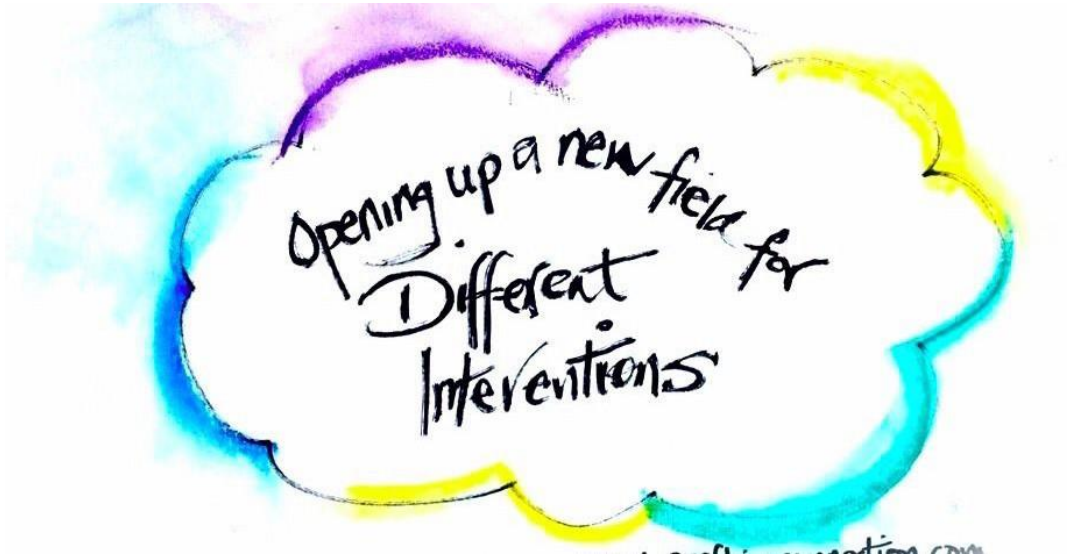 Opening up a new field for
Different
Interventions